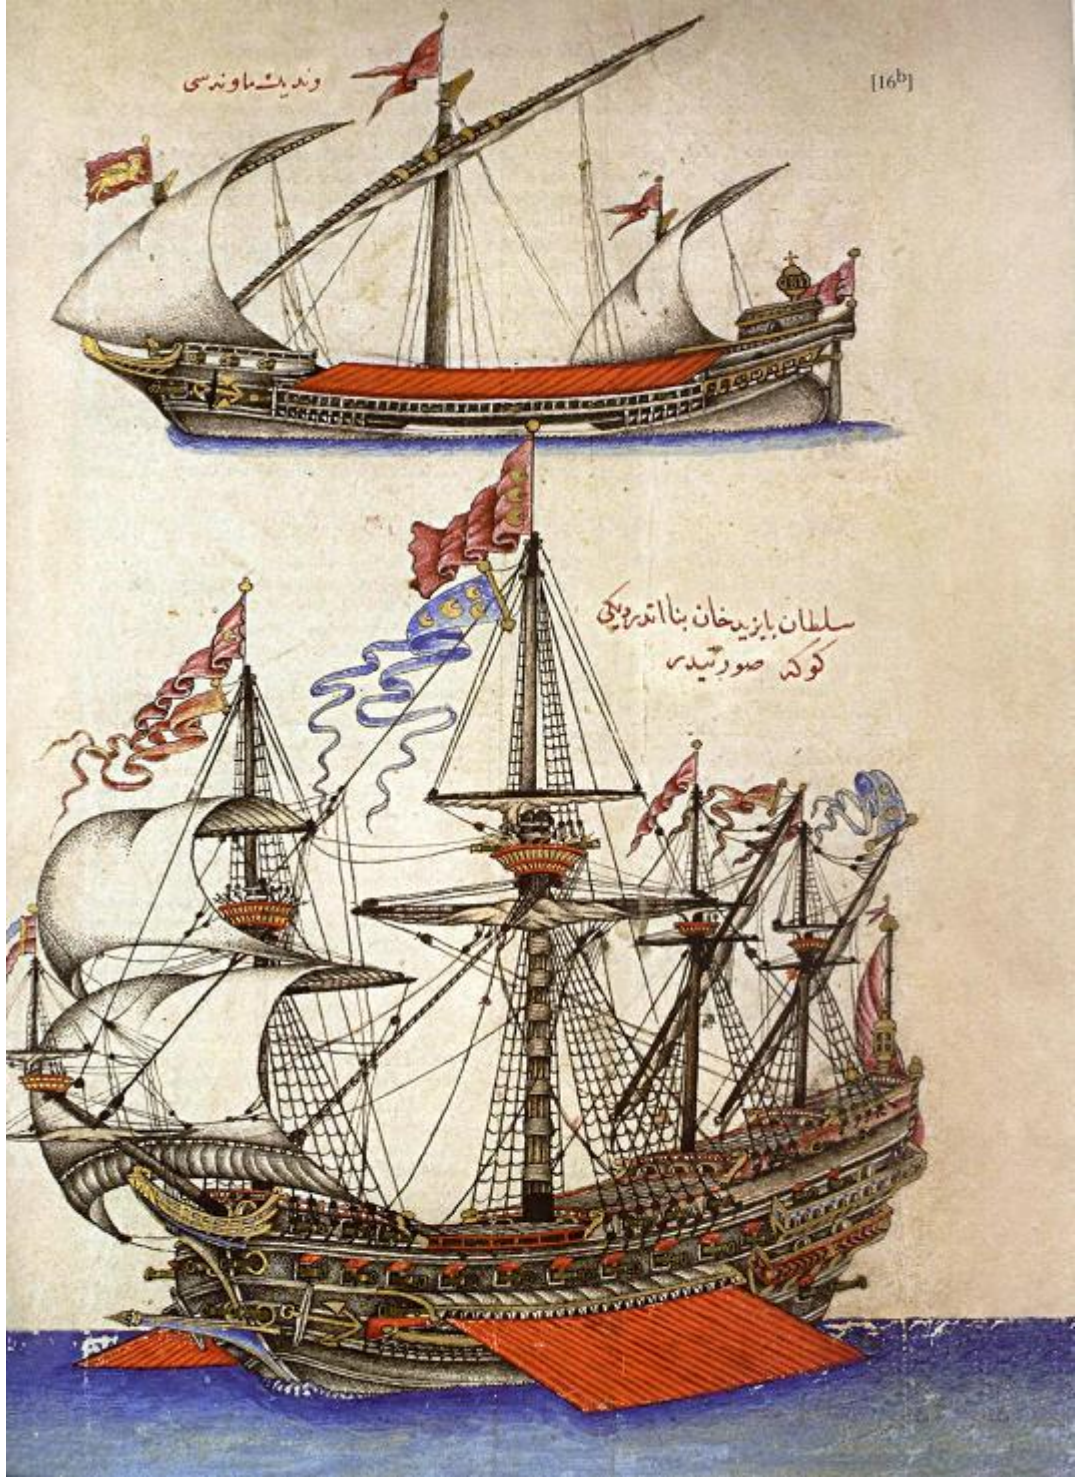 وندیك ماونه سی
[16b]
سلطان بایزید خان بنا اتدردیكی
كوكه صورتیدر